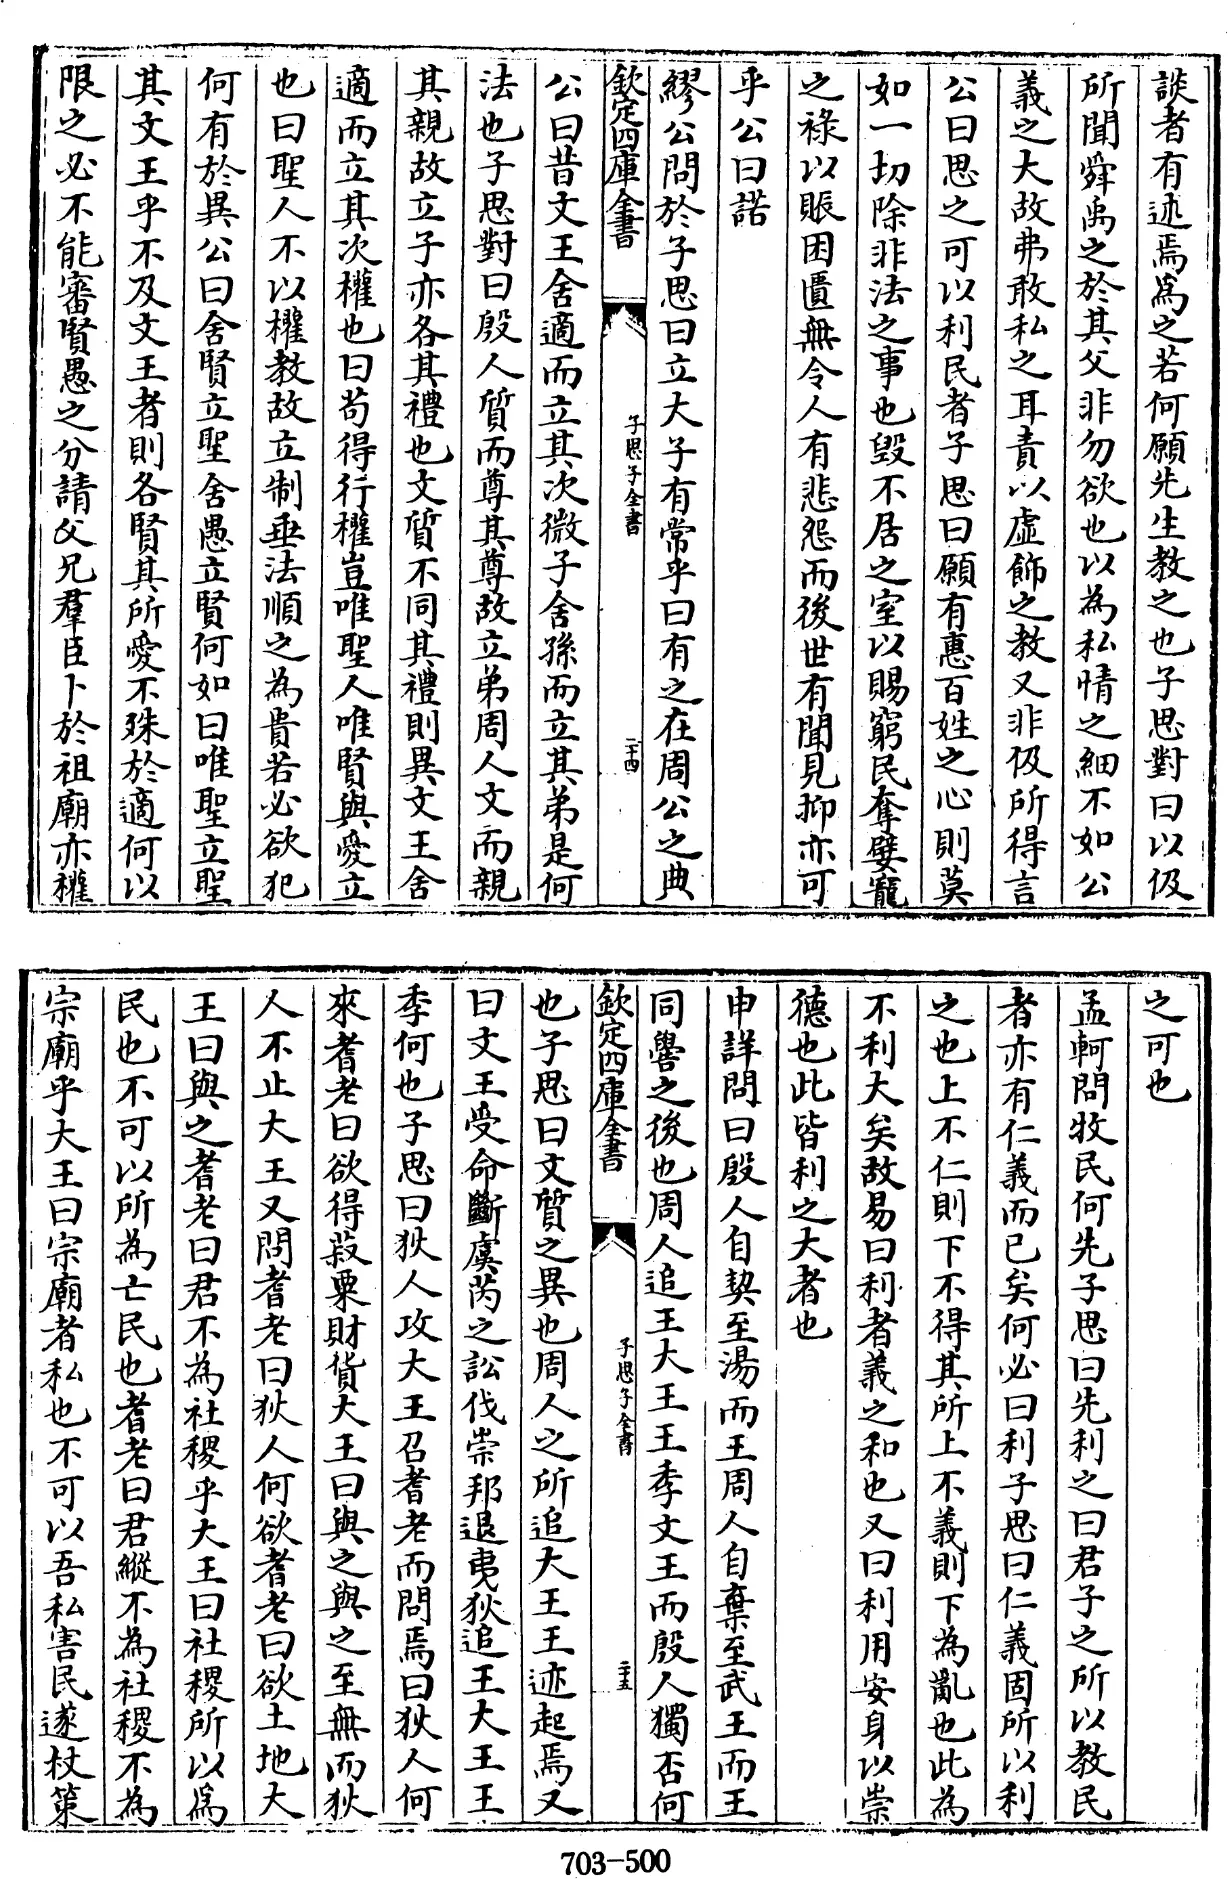 談者有述焉為之若何願先生教之也子思對曰以伋
所聞舜禹之於其父非勿欲也以為私情之細不如公
義之大故弗敢私之耳責以虛飾之教又非伋所得言
公曰思之可以利民者子思曰願有惠百姓之心則莫
如一切除非法之事也毀不居之室以賜窮民奪嬖寵
之祿以賑困匱無令人有悲怨而後世有聞見抑亦可
乎公曰諾
繆公問於子思曰立大子有常乎曰有之在周公之典
欽定四庫全書
子思子全書
二十四
公曰昔文王舍適而立其次微子舍孫而立其弟是何
法也子思對曰殷人質而尊其尊故立弟周人文而親
其親故立子亦各其禮也文質不同其禮則異文王舍
適而立其次權也曰苟得行權豈唯聖人唯賢與愛立
也曰聖人不以權教故立制垂法順之為貴若必欲犯
何有於異公曰舍賢立聖舍愚立賢何如曰唯聖立聖
其文王乎不及文王者則各賢其所愛不殊於適何以
限之必不能審賢愚之分請父兄羣臣卜於祖廟亦權
之可也
孟軻問牧民何先子思曰先利之曰君子之所以教民
者亦有仁義而已矣何必曰利子思曰仁義固所以利
之也上不仁則下不得其所上不義則下為亂也此為
不利大矣故易曰利者義之和也又曰利用安身以崇
德也此皆利之大者也
申詳問曰殷人自契至湯而王周人自棄至武王而王
同嚳之後也周人追王大王王季文王而殷人獨否何
欽定四庫全書
子思子全書
二十五
也子思曰文質之異也周人之所追大王王迹起焉又
曰文王受命斷虞芮之訟伐崇邦退夷狄追王大王王
季何也子思曰狄人攻大王召耆老而問焉曰狄人何
來耆老曰欲得菽粟財貨大王曰與之與之至無而狄
人不止大王又問耆老曰狄人何欲耆老曰欲土地大
王曰與之耆老曰君不為社稷乎大王曰社稷所以為
民也不可以所為亡民也耆老曰君縱不為社稷不為
宗廟乎大王曰宗廟者私也不可以吾私害民遂杖策
703-500